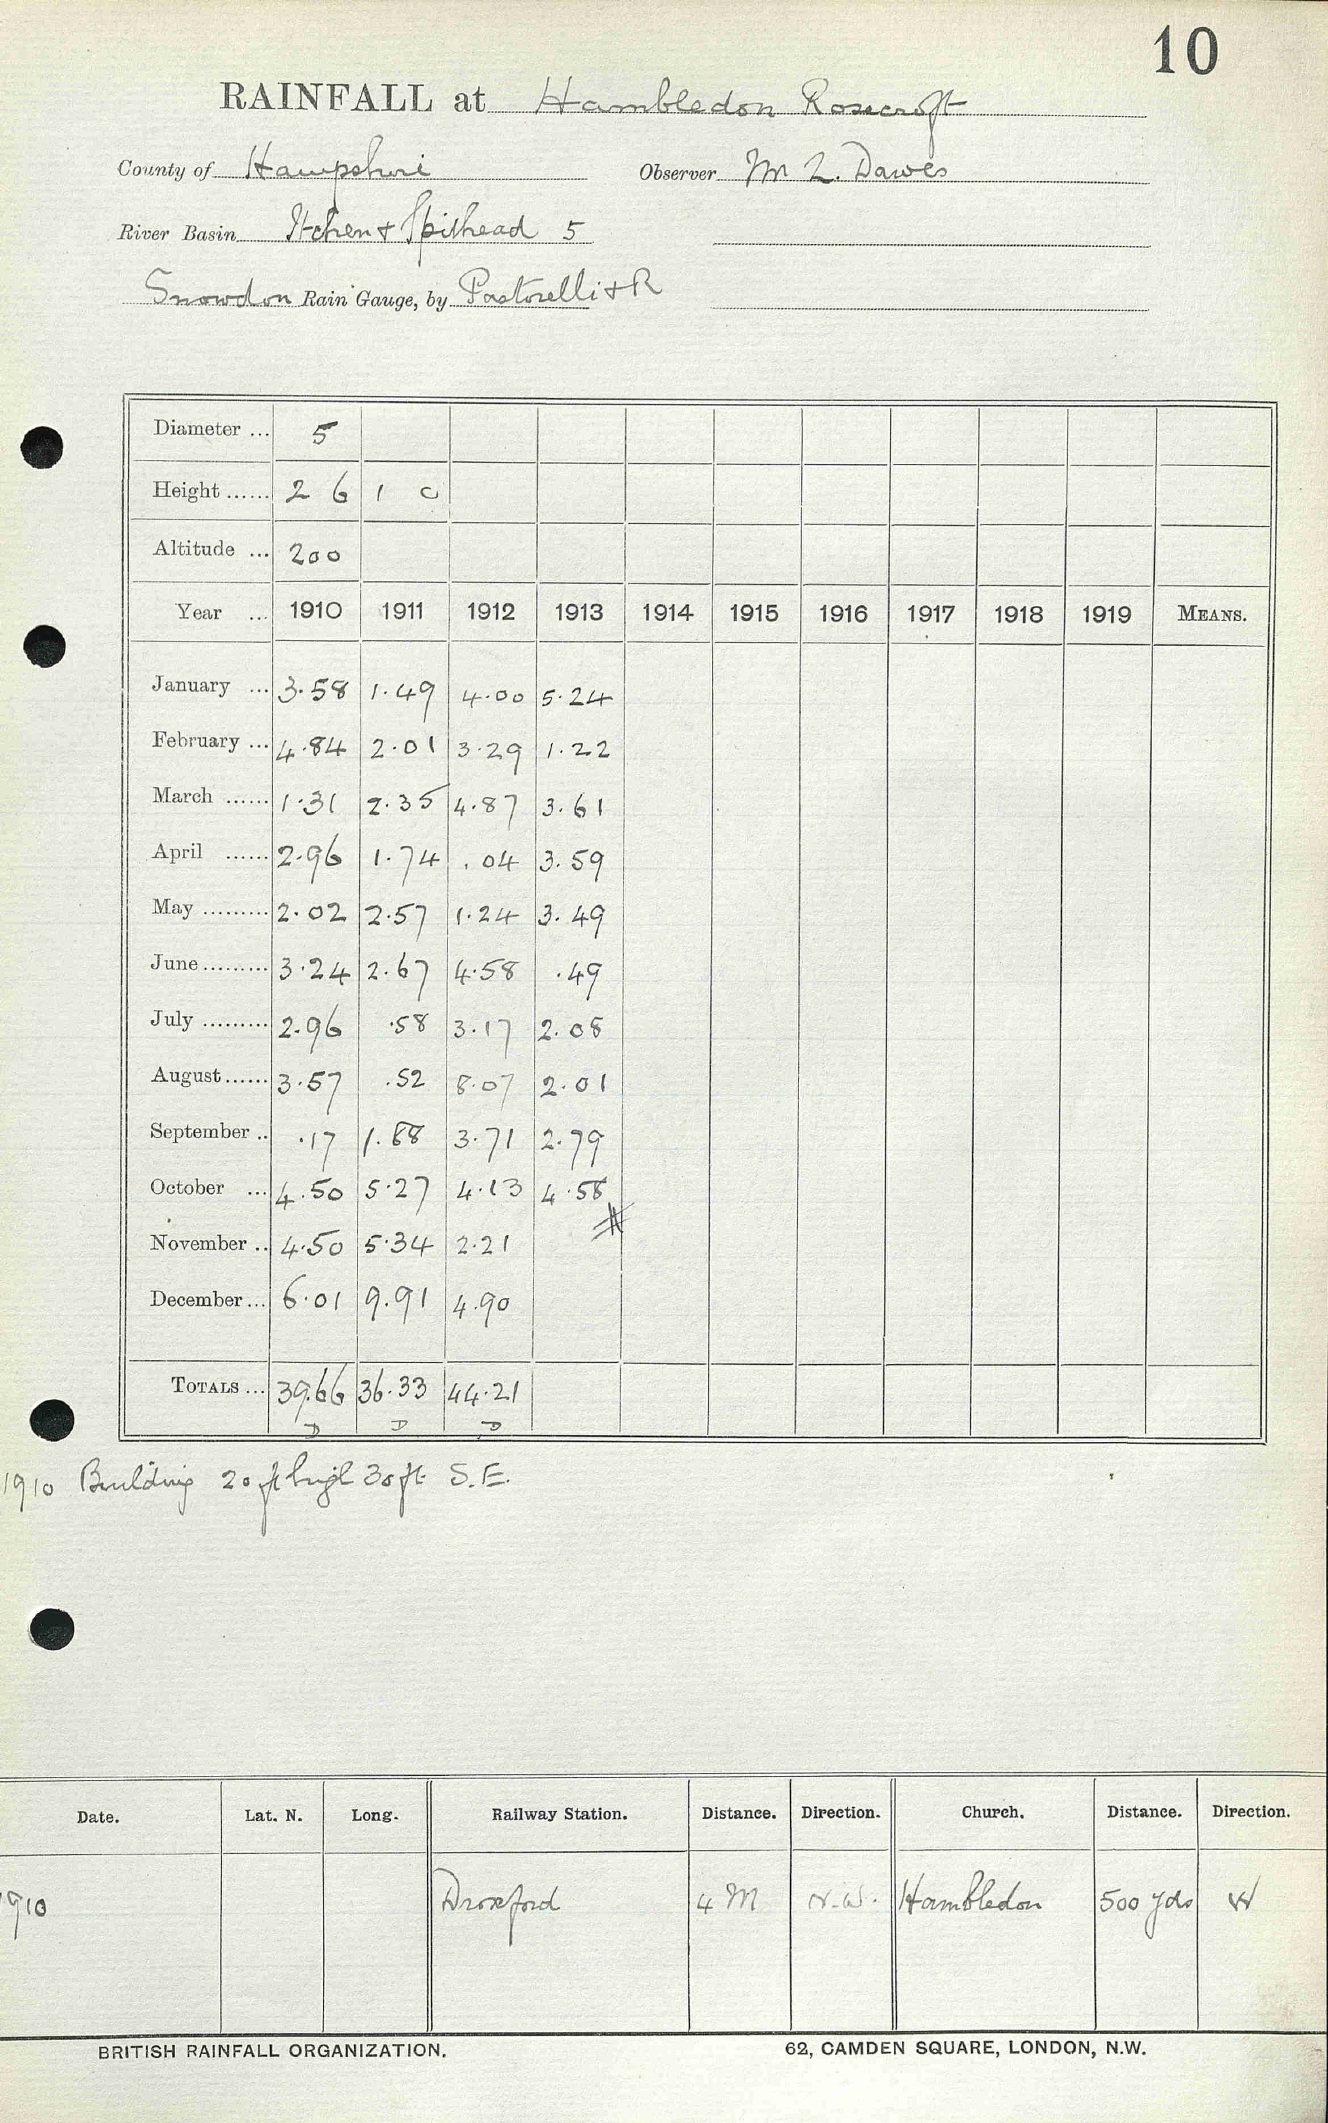 10
RAINFALL at Hambledon Rosecroft
County of Hampshire Observer M L. Dawes
River Basin Itchen & Spithead 5
Snowdon Rain Gauge, by Pastorelli & R
Diameter ... 5
Height ...... 2 6 1 0
Altitude ... 200
Year ... 1910 1911 1912 1913 1914 1915 1916 1917 1918 1919 MEANS.
January ... 3.58 1.49 4.00 5.24
February ... 4.84 2.01 3.29 1.22
March ...... 1.31 2.35 4.87 3.61
April ...... 2.96 1.74 .04 3.59
May ......... 2.02 2.57 1.24 3.49
June ......... 3.24 2.67 4.58 .49
July ......... 2.96 .58 3.17 2.08
August ...... 3.57 .52 8.07 2.01
September .. .17 1.88 3.71 2.79
October ... 4.50 5.27 4.13 4.58
November .. 4.50 5.34 2.21
December ... 6.01 9.91 4.90
TOTALS ... 39.66 36.33 44.21
D D D
1910 Building 20 ft high 30 ft S.E.
Date. Lat. N. Long. Railway Station. Distance. Direction. Church. Distance. Direction.
1910 Droxford 4 M N.W. Hambledon 500 yds W
BRITISH RAINFALL ORGANIZATION. 62, CAMDEN SQUARE, LONDON, N.W.